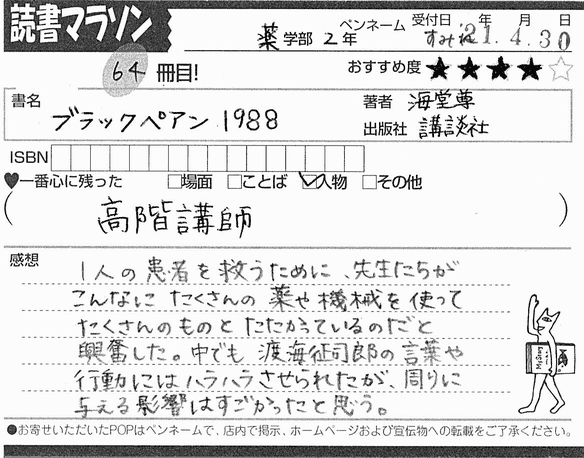 読書マラソン
薬学部 2年 ペンネーム すみれ 受付日 21年4月30日
64冊目!
おすすめ度 ★★★★☆
書名 ブラックペアン 1988
著者 海堂尊
出版社 講談社
ISBN
♥一番心に残った □場面 □ことば ☑人物 □その他
( 高階講師 )
感想
1人の患者を救うために、先生たちが
こんなに たくさんの 薬や機械を使って
たくさんのものと たたかっているのだと
興奮した。中でも 渡海征司郎の言葉や
行動にはハラハラさせられたが、周りに
与える影響はすごかったと思う。
●お寄せいただいたPOPはペンネームで、店内で掲示、ホームページおよび宣伝物への転載をご了承ください。